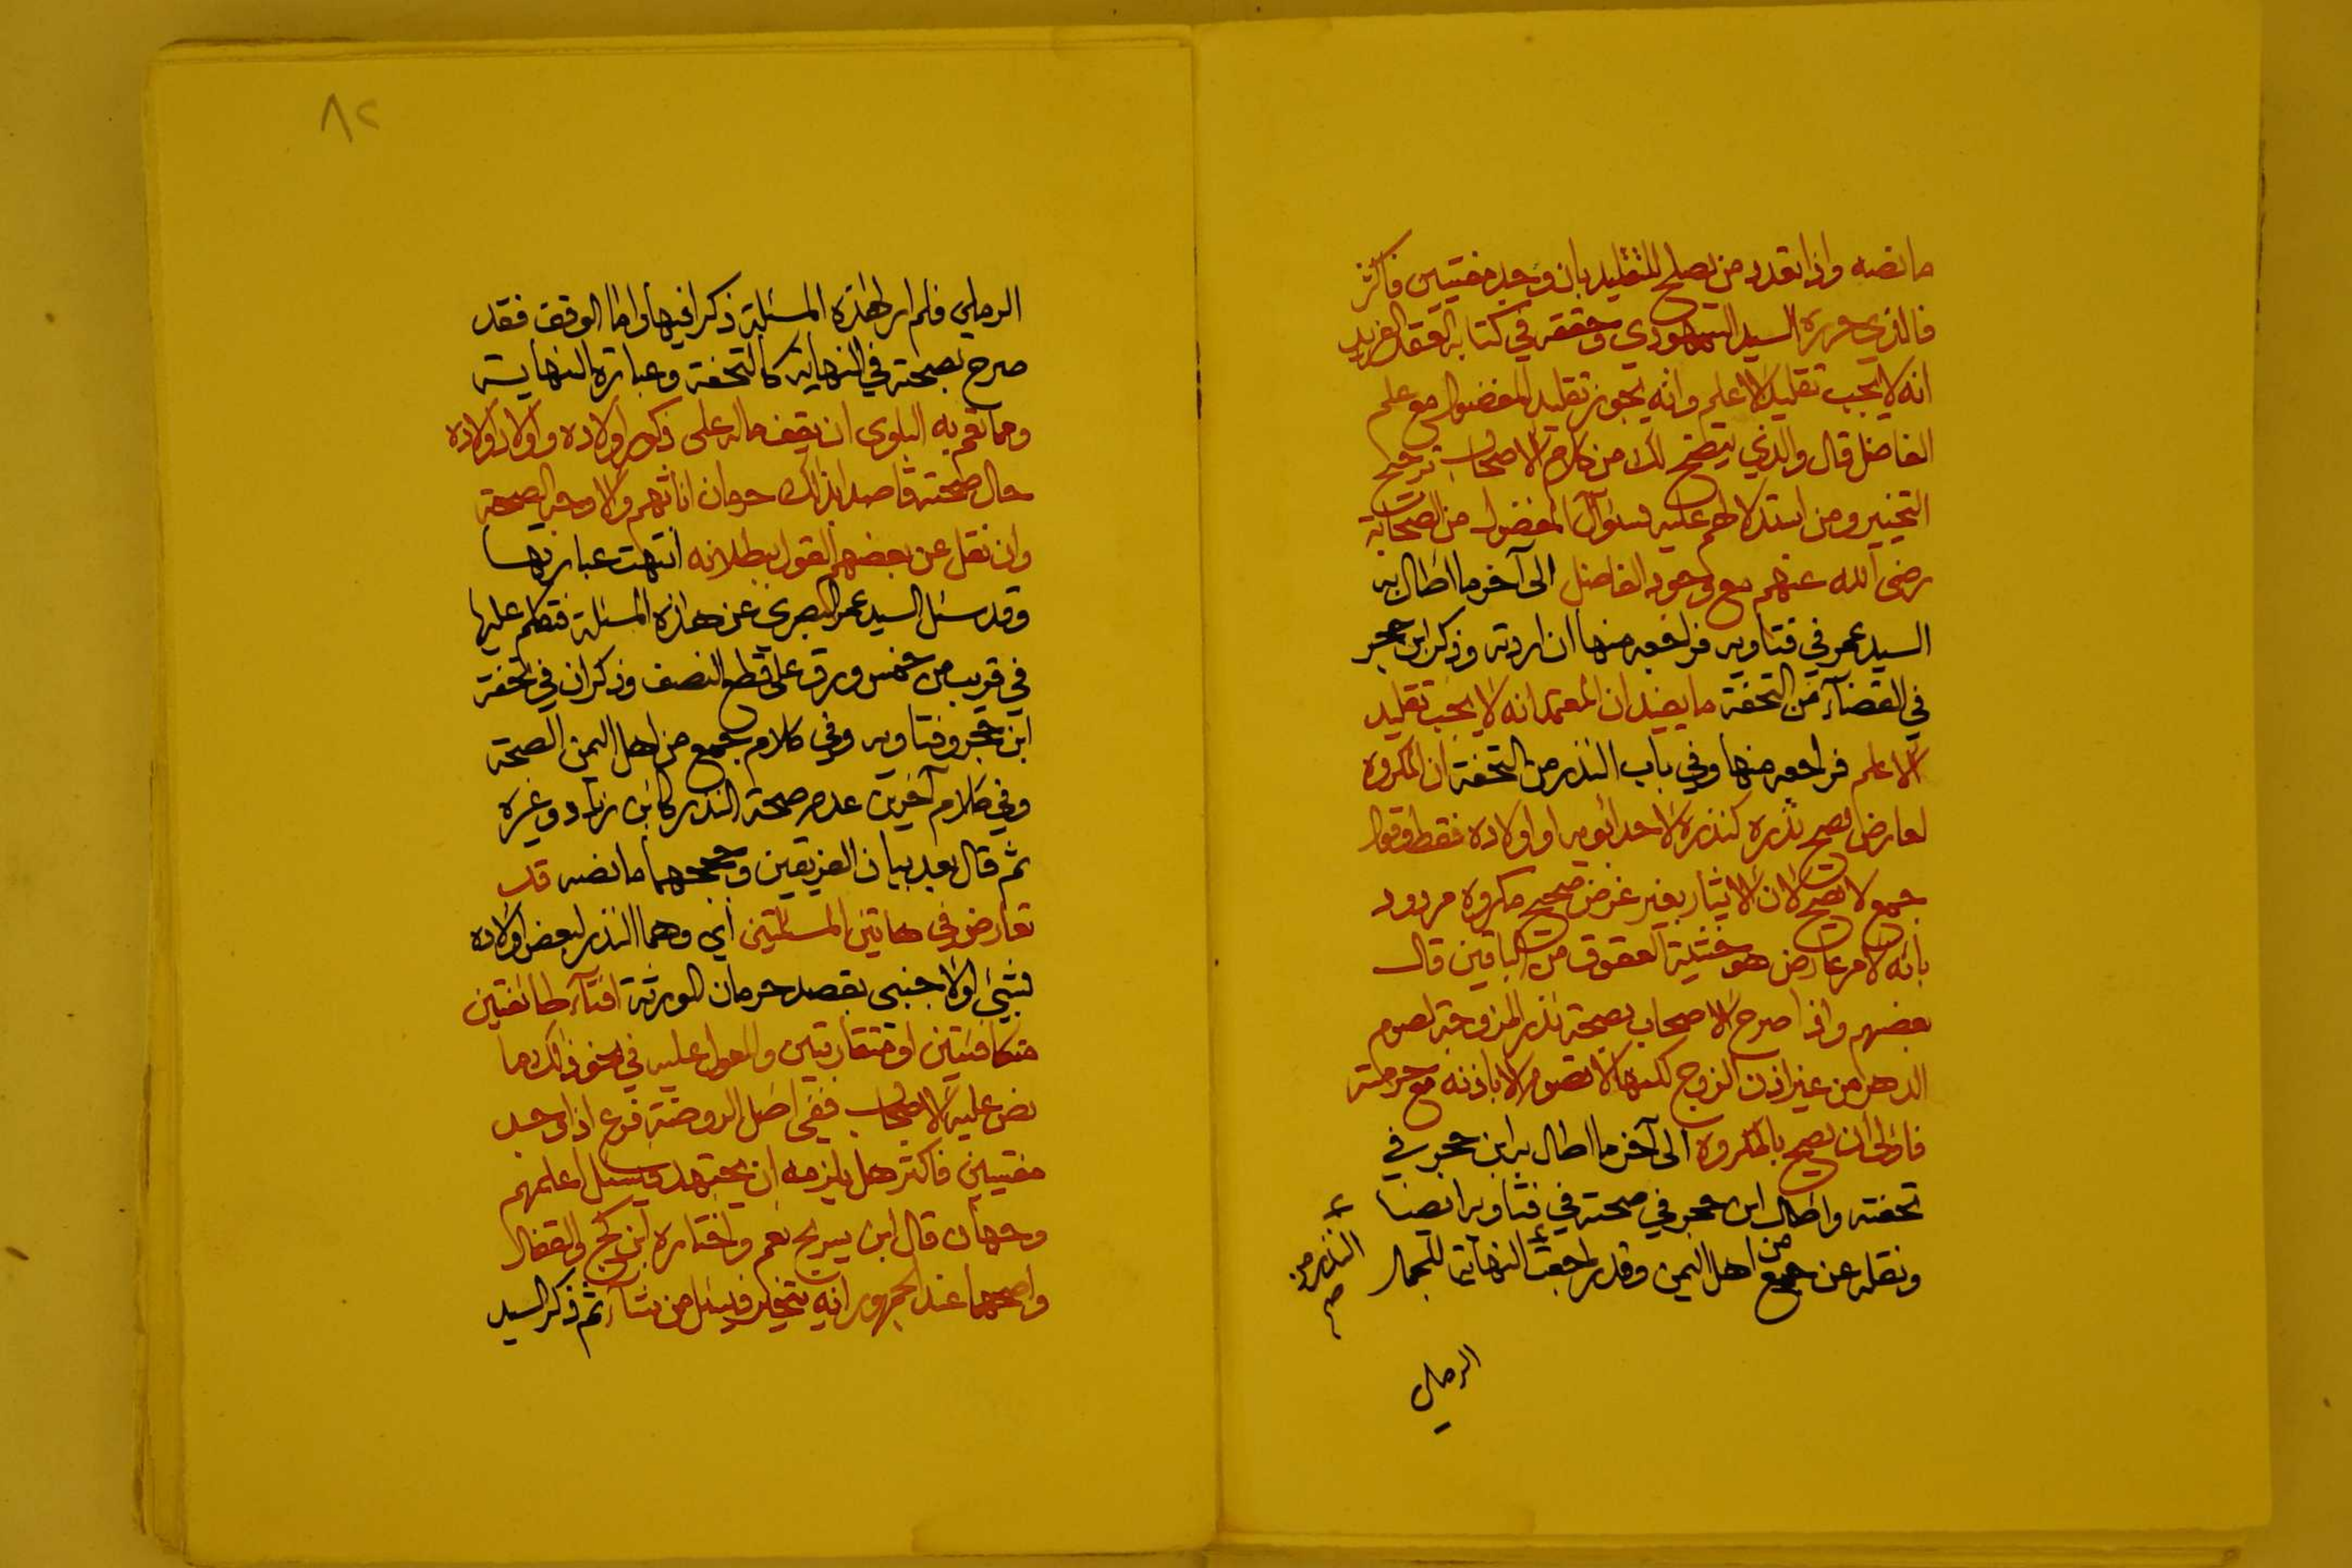 ما نصه واذا تعدد من يصلح للتقليد بان وجد مفتيين فاكثر
فالذي حرره السيد السمهودي وحققه في كتابه العقد الفريد
انه لا يجب تقليد الاعلم وانه يجوز تقليد المفضول مع علم
الفاضل قال والذي يتضح لك من كلام الاصحاب ترجيح
التخيير ومن استدلالهم عليه بسؤآل المفضول من الصحابة
رضى الله عنهم مع وجود الفاضل الى آخر ما اطال به
السيد عمر في فتاويه فراجعه منها ان اردته وذكر ابن حجر
في القضآء من التحفة ما يفيد ان المعتمد انه لا يجب تقليد
الاعلم فراجعه منها وفي باب النذر من التحفة ان المكروه
لعارض يصح نذره كنذره لاحد ابويه او اولاده فقط وقول
جمع لا يصح لان الايثار بغير غرض صحيح مكروه مردود
بانه لامر عارض هو خشية العقوق من الباقين قال
بعضهم واذا صرح الاصحاب بصحة نذر المزوجة لصوم
الدهر من غير اذن الزوج لكنها لا تصوم الا باذنه مع حرمته
فاولى ان يصح بالمكروه الى آخر ما اطال به ابن حجر في
تحفته واطال ابن حجر في صحته في فتاويه ايضا
ونقله عن جمع من اهل اليمن وقد راجعت النهاية للجمال
النذر من
صح
الرملي
٨٢
الرملي فلم ار لهذه المسئلة ذكرا فيها واما الوقف فقد
صرح بصحته في النهاية كالتحفة وعبارة النهاية
ومما تعم به البلوى ان يقف ماله على ذكور اولاده واولاد اولاده
حال صحته قاصدا بذلك حرمان اناثهم والاوجه الصحة
وان نقل عن بعضهم القول ببطلانه انتهت عبارتها
وقد سئل السيد عمر البصري عن هذه المسئلة فتكلم عليها
في قريب من خمس ورق على قطع النصف وذكر ان في تحفة
ابن حجر وفتاويه وفي كلام جمع من اهل اليمن الصحة
وفي كلام آخرين عدم صحة النذر كابن زياد وغيره
ثم قال بعد بيان الفريقين وحججهما ما نصه قد
تعارض في هاتين المسئلتين اي وهما النذر لبعض اولاده
بشيئ او لاجنبي بقصد حرمان الورثة افتآء طائفتين
متكافئتين او متقاربتين والمعول عليه في نحو ذلك ما
نص عليه الاصحاب ففي اصل الروضة فرع اذا وجد
مفتيين فاكثر هل يلزمه ان يجتهد فيسئل اعلمهم
وجهان قال ابن سريج نعم واختاره ابن كج والقفال
واصحهما عند الجمهور انه يتخير فيسئل من شآء ثم ذكر السيد